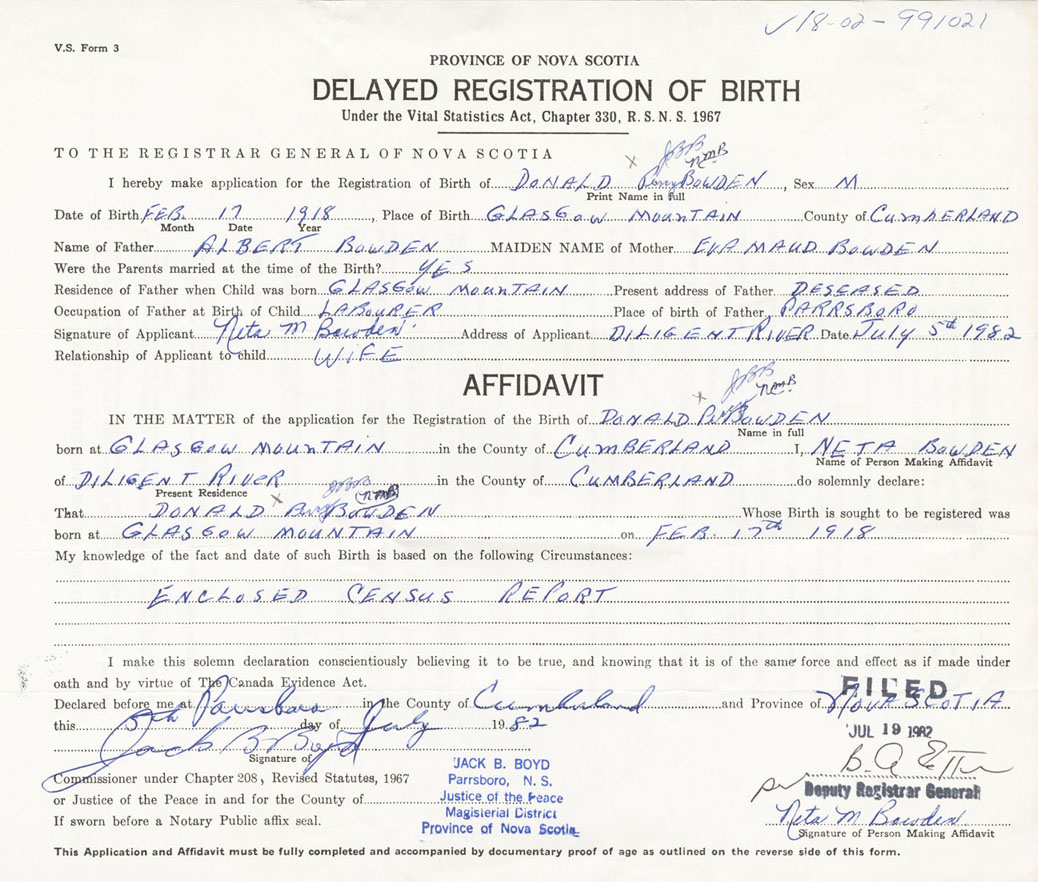 V.S. Form 3
18-02-991021
PROVINCE OF NOVA SCOTIA
DELAYED REGISTRATION OF BIRTH
Under the Vital Statistics Act, Chapter 330, R.S.N.S. 1967
TO THE REGISTRAR GENERAL OF NOVA SCOTIA
JBB NMB
I hereby make application for the Registration of Birth of DONALD Percy BOWDEN, Sex M
Print Name in full
Date of Birth FEB. 17 1918, Place of Birth GLASGOW MOUNTAIN County of CUMBERLAND
Month Date Year
Name of Father ALBERT BOWDEN MAIDEN NAME of Mother EVA MAUD BOWDEN
Were the Parents married at the time of the Birth? YES
Residence of Father when Child was born GLASGOW MOUNTAIN Present address of Father DESEASED
Occupation of Father at Birth of Child LABOURER Place of birth of Father PARRSBORO
Signature of Applicant Neta M Bowden Address of Applicant DILIGENT RIVER Date July 5th 1982
Relationship of Applicant to child WIFE
AFFIDAVIT
JBB NMB
IN THE MATTER of the application for the Registration of the Birth of DONALD BOWDEN
Name in full
born at GLASGOW MOUNTAIN in the County of CUMBERLAND I, NETA BOWDEN
Name of Person Making Affidavit
of DILIGENT RIVER in the County of CUMBERLAND do solemnly declare:
Present Residence
JBB NMB
That DONALD BOWDEN Whose Birth is sought to be registered was
born at GLASGOW MOUNTAIN on FEB. 17th 1918
My knowledge of the fact and date of such Birth is based on the following Circumstances:
ENCLOSED CENSUS REPORT
I make this solemn declaration conscientiously believing it to be true, and knowing that it is of the same force and effect as if made under
oath and by virtue of The Canada Evidence Act.
FILED
Declared before me at Parrsboro in the County of Cumberland and Province of NOVA SCOTIA
this 5th day of July 1982
JUL 19 1982
Jack B Boyd
Signature of
Commissioner under Chapter 208, Revised Statutes, 1967
or Justice of the Peace in and for the County of
If sworn before a Notary Public affix seal.
JACK B. BOYD
Parrsboro, N. S.
Justice of the Peace
Magisterial District
Province of Nova Scotia
Deputy Registrar General
Neta M Bowden
Signature of Person Making Affidavit
This Application and Affidavit must be fully completed and accompanied by documentary proof of age as outlined on the reverse side of this form.